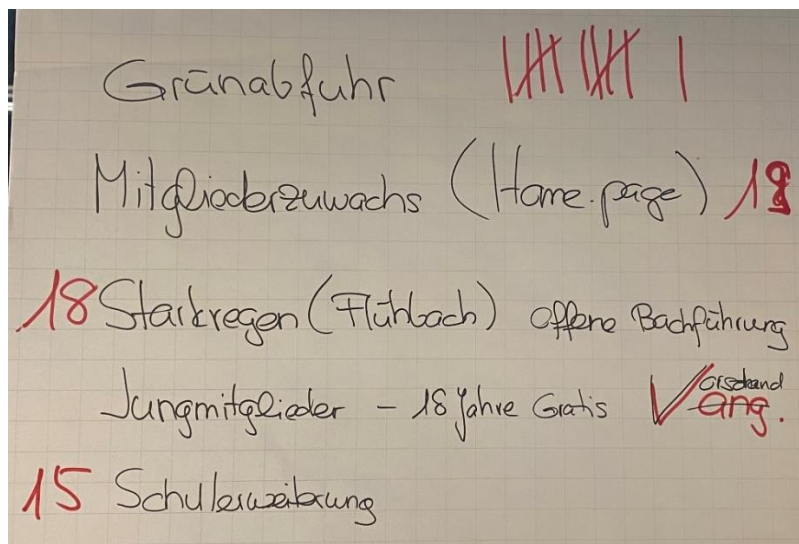 Grünabfuhr |||| |||| |
Mitgliederzuwachs (Home.page)
18 Starkregen (Flühbach) offene Bachführung
Jungmitglieder - 18 Jahre Gratis Vorstand
ang.
15 Schulerweiterung